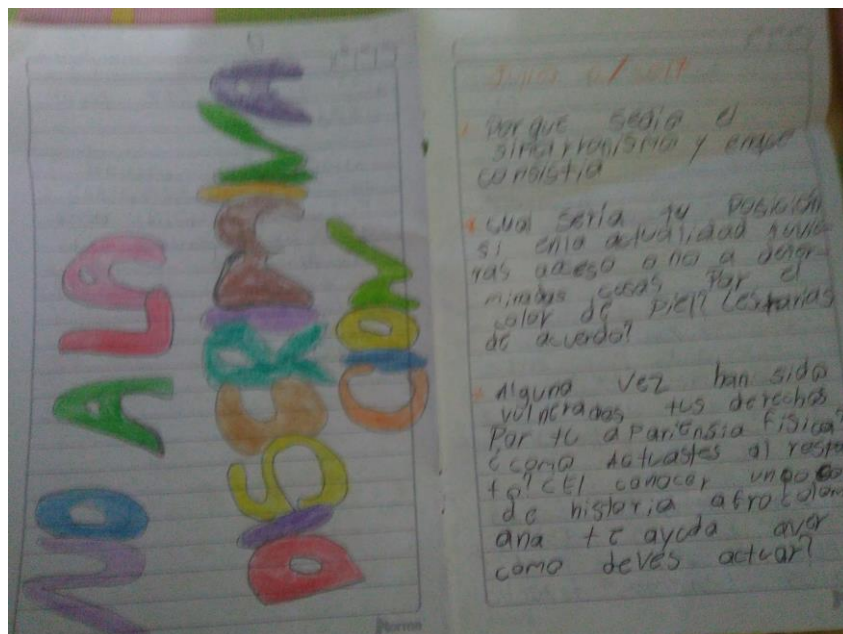 NO A LA
DISCRIMINA
CION
Norma
Por que sedio el
simarronismo y enque
consistia
cual seria tu posicion
si enla actualidad tuvie-
ras acceso o no a deter-
minadas cosas Por el
color de piel? ¿estarias
de acuerdo?
Alguna vez han sido
vulnerados tus derechos
Por tu apariensia fisica?
¿como actuastes al respec
to? ¿El conocer unpoco
de historia afrocolom
ana te ayuda aver
como deves actuar?